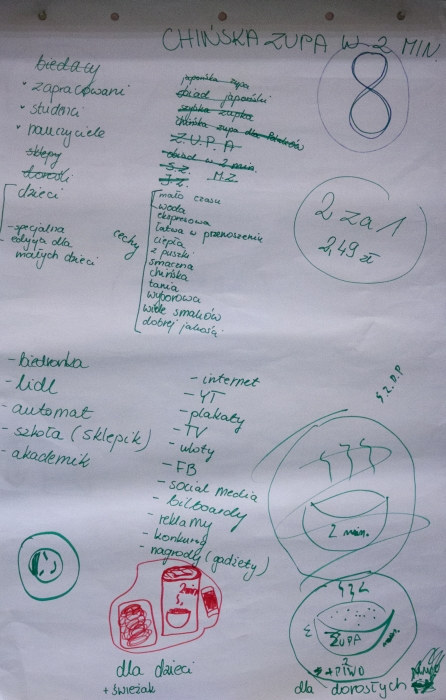 CHIŃSKA ZUPA W 2 MIN.
biedacy
• zapracowani
• studenci
• nauczyciele
sklepy
dzieci
- specjalna
edycja dla
małych dzieci
japońska zupa
obiad japoński
szybka zupka
chińska zupa dla Polaków
Z.U.P.A
obiad w 2 min.
S.Z.
J.Z. M.Z.
cechy
mało czasu
woda
ekspresowa
łatwa w przenoszeniu
ciepła
z puszki
smaczna
chińska
tania
wyborowa
wiele smaków
dobrej jakości
8
2 za 1
2,49 zł
- biedronka
- lidl
- automat
- szkoła (sklepik)
- akademik
- internet
- YT
- plakaty
- TV
- uloty
- FB
- social media
- bilboardy
- reklamy
- konkursy
- nagrody (gadżety)
2 min.
2min
ZUPA
+ PIWO
dla dzieci
+ świeżak
dla dorosłych